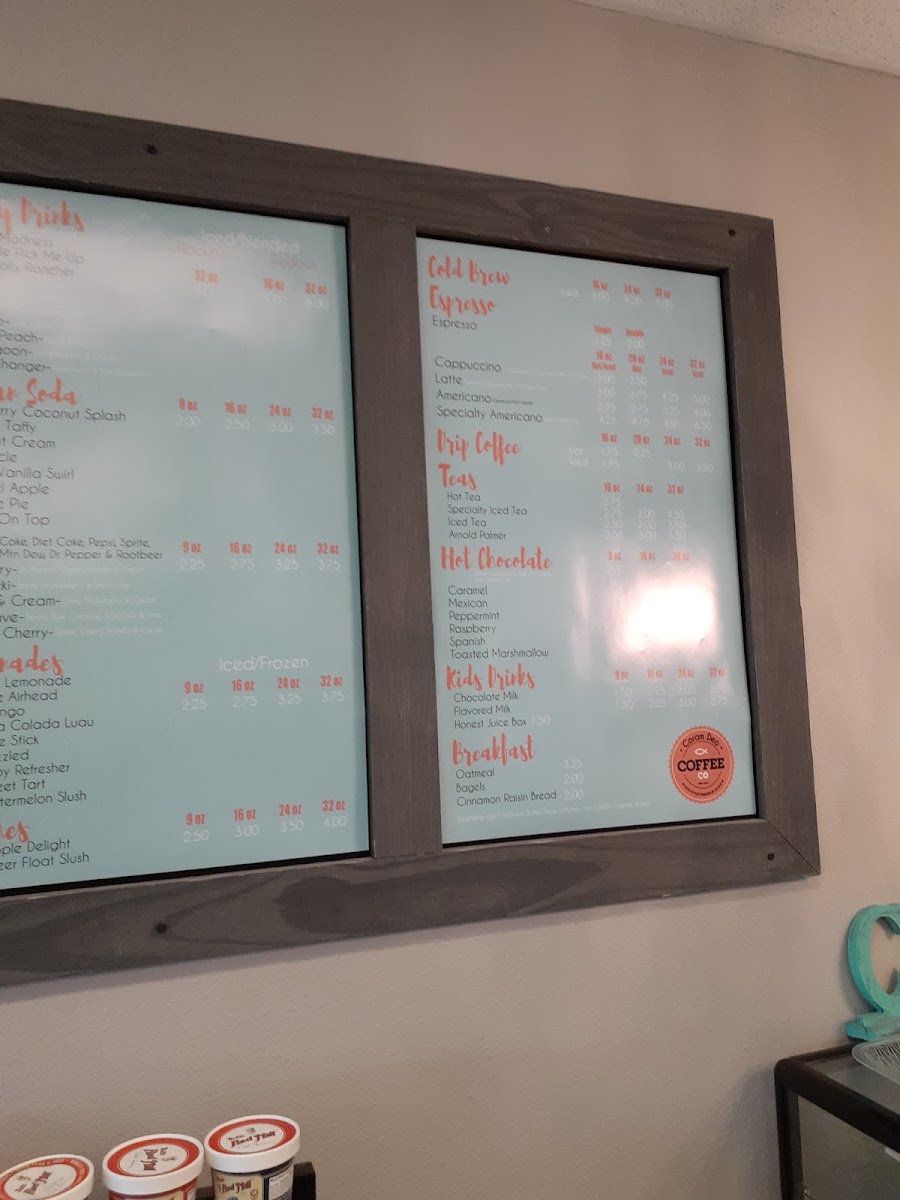 y Drinks
Madness
le Pick Me Up
Rancher
Iced/Blended
Rockstar Redbull
32 oz 16 oz 32 oz
Peach-
oon-
hanger-
Soda
rry Coconut Splash
Taffy
t Cream
cle
Vanilla Swirl
l Apple
e Pie
On Top
9 oz 16 oz 24 oz 32 oz
2.00 2.50 3.00 3.50
Coke, Diet Coke, Pepsi, Sprite,
Mtn Dew, Dr. Pepper & Rootbeer
9 oz 16 oz 24 oz 32 oz
2.25 2.75 3.25 3.75
ry-
ki-
& Cream-
ave-
Cherry-
nades
Iced/Frozen
Lemonade
e Airhead
ngo
a Colada Luau
e Stick
zzled
by Refresher
eet Tart
termelon Slush
9 oz 16 oz 24 oz 32 oz
2.25 2.75 3.25 3.75
es
ple Delight
eer Float Slush
9 oz 16 oz 24 oz 32 oz
2.50 3.00 3.50 4.00
Cold Brew
16 oz 24 oz 32 oz
Iced 3.00 4.00 5.00
Espresso
Espresso
Single Double
1.25 2.00
16 oz 20 oz 24 oz 32 oz
Hot/Iced Hot Iced Iced
Cappuccino 3.00 3.50
Latte 3.00 3.75 4.25 5.00
Americano 2.25 2.75 3.25 4.00
Specialty Americano 4.25 4.75 4.90 6.50
Drip Coffee
16 oz 20 oz 24 oz 32 oz
Hot 1.75 2.25
Iced 1.75 3.00 3.50
Teas
16 oz 24 oz 32 oz
Hot Tea 2.75
Specialty Iced Tea 2.75 3.00 4.50
Iced Tea 2.50 3.00 3.50
Arnold Palmer 2.50 3.00 3.50
Hot Chocolate
9 oz 16 oz 20 oz
Caramel
Mexican
Peppermint
Raspberry
Spanish
Toasted Marshmallow
Kids Drinks
9 oz 16 oz 24 oz 32 oz
Chocolate Milk 1.50 2.25 3.00 3.75
Flavored Milk 1.50 2.25 3.00 3.75
Honest Juice Box 1.50
Breakfast
Oatmeal 3.25
Bagels 2.00
Cinnamon Raisin Bread 2.00
Coram Deo
COFFEE
CO
Red Mill
Red Mill
Red Mill
Red Mill